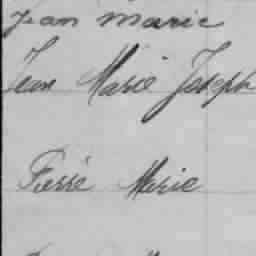 Jean Marie
Jean Marie Joseph
Pierre Marie